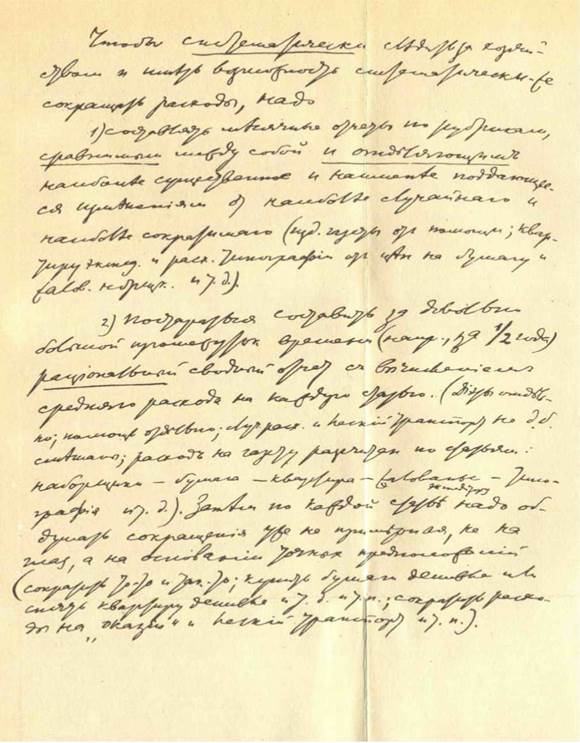 Чтобы систематически следить за хозяй-
ством и иметь возможность систематически-же
сокращать расходы, надо
1) составлять месячные отчеты по рубрикам,
сравнимым между собой и отделяющим
наиболее существенное и наименее поддающее-
ся изменениям от наиболее случайного и
наиболее сократимого (изд. газеты от помощи; квар-
тиру экспед. и расх. типографіи от цен на бумагу и
жалов. наборщ. и т. д.).
2) Постараться составить за довольно
большой промежуток времени (напр., за 1/2 года)
раціональный сводный отчет с вычисленіем
среднего расхода на каждую статью. (Дѣти отдѣль-
но; помощь отдѣльно; расх. и транспорт не д. б.
смѣшаны; расход на газету расчитан по статьям:
наборщики – бумага – квартира – жалованье – типо-
экспедитору
графія и т. д.). Затѣм по каждой статьѣ надо об-
думать сокращенія уже не примѣрная, не на
глаз, а на основаніи точных предположеній
(сократить то-то и так-то; купить бумаги дешевле или
снять квартиру дешевле и т. д. и т. п.; сократить расхо-
ды на „оказіи“ и транспорт и т. п.).